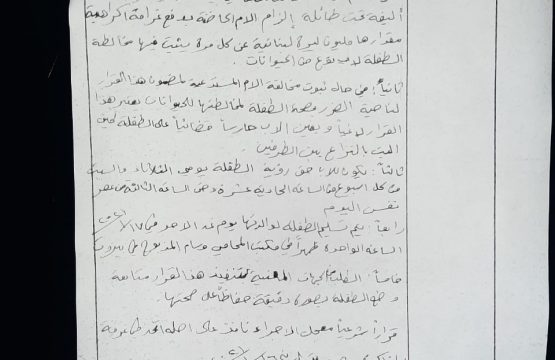 أليفة تحت طائلة إلزام الام الحاضنة بدفع غرامة اكراهية
مقدارها مليون ليرة لبنانية عن كل مرة يثبت فيها مخالطة
الطفلة لاي نوع من الحيوانات .
ثانياً : في حال ثبوت مخالفة الام المستدعية لمضمون هذا القرار
لناحية الضرر بصحة الطفلة لمخالطتها للحيوانات يعتبر هذا
القرار لاغياً ويعين الاب حارساً قضائياً على الطفلة لحين
البت بالنزاع بين الطرفين .
ثالثاً : يكون للاب حق رؤية الطفلة يومي الثلاثاء والسبت
من كل اسبوع من الساعة الحادية عشرة وحتى الساعة الثالثة من عصر
نفس اليوم
رابعاً : يتم تسليم الطفلة لوالدتها يوم غد الاحد في
الساعة الواحدة ظهراً في مكتب المحامي وسام المذبوح في بيروت
خامساً : الطلب الجهات المعنية بتنفيذ هذا القرار متابعة
وضع الطفلة بصورة دقيقة حفاظاً على صحتها .
قراراً شرعياً معجل الاجراء نافذ على اصله